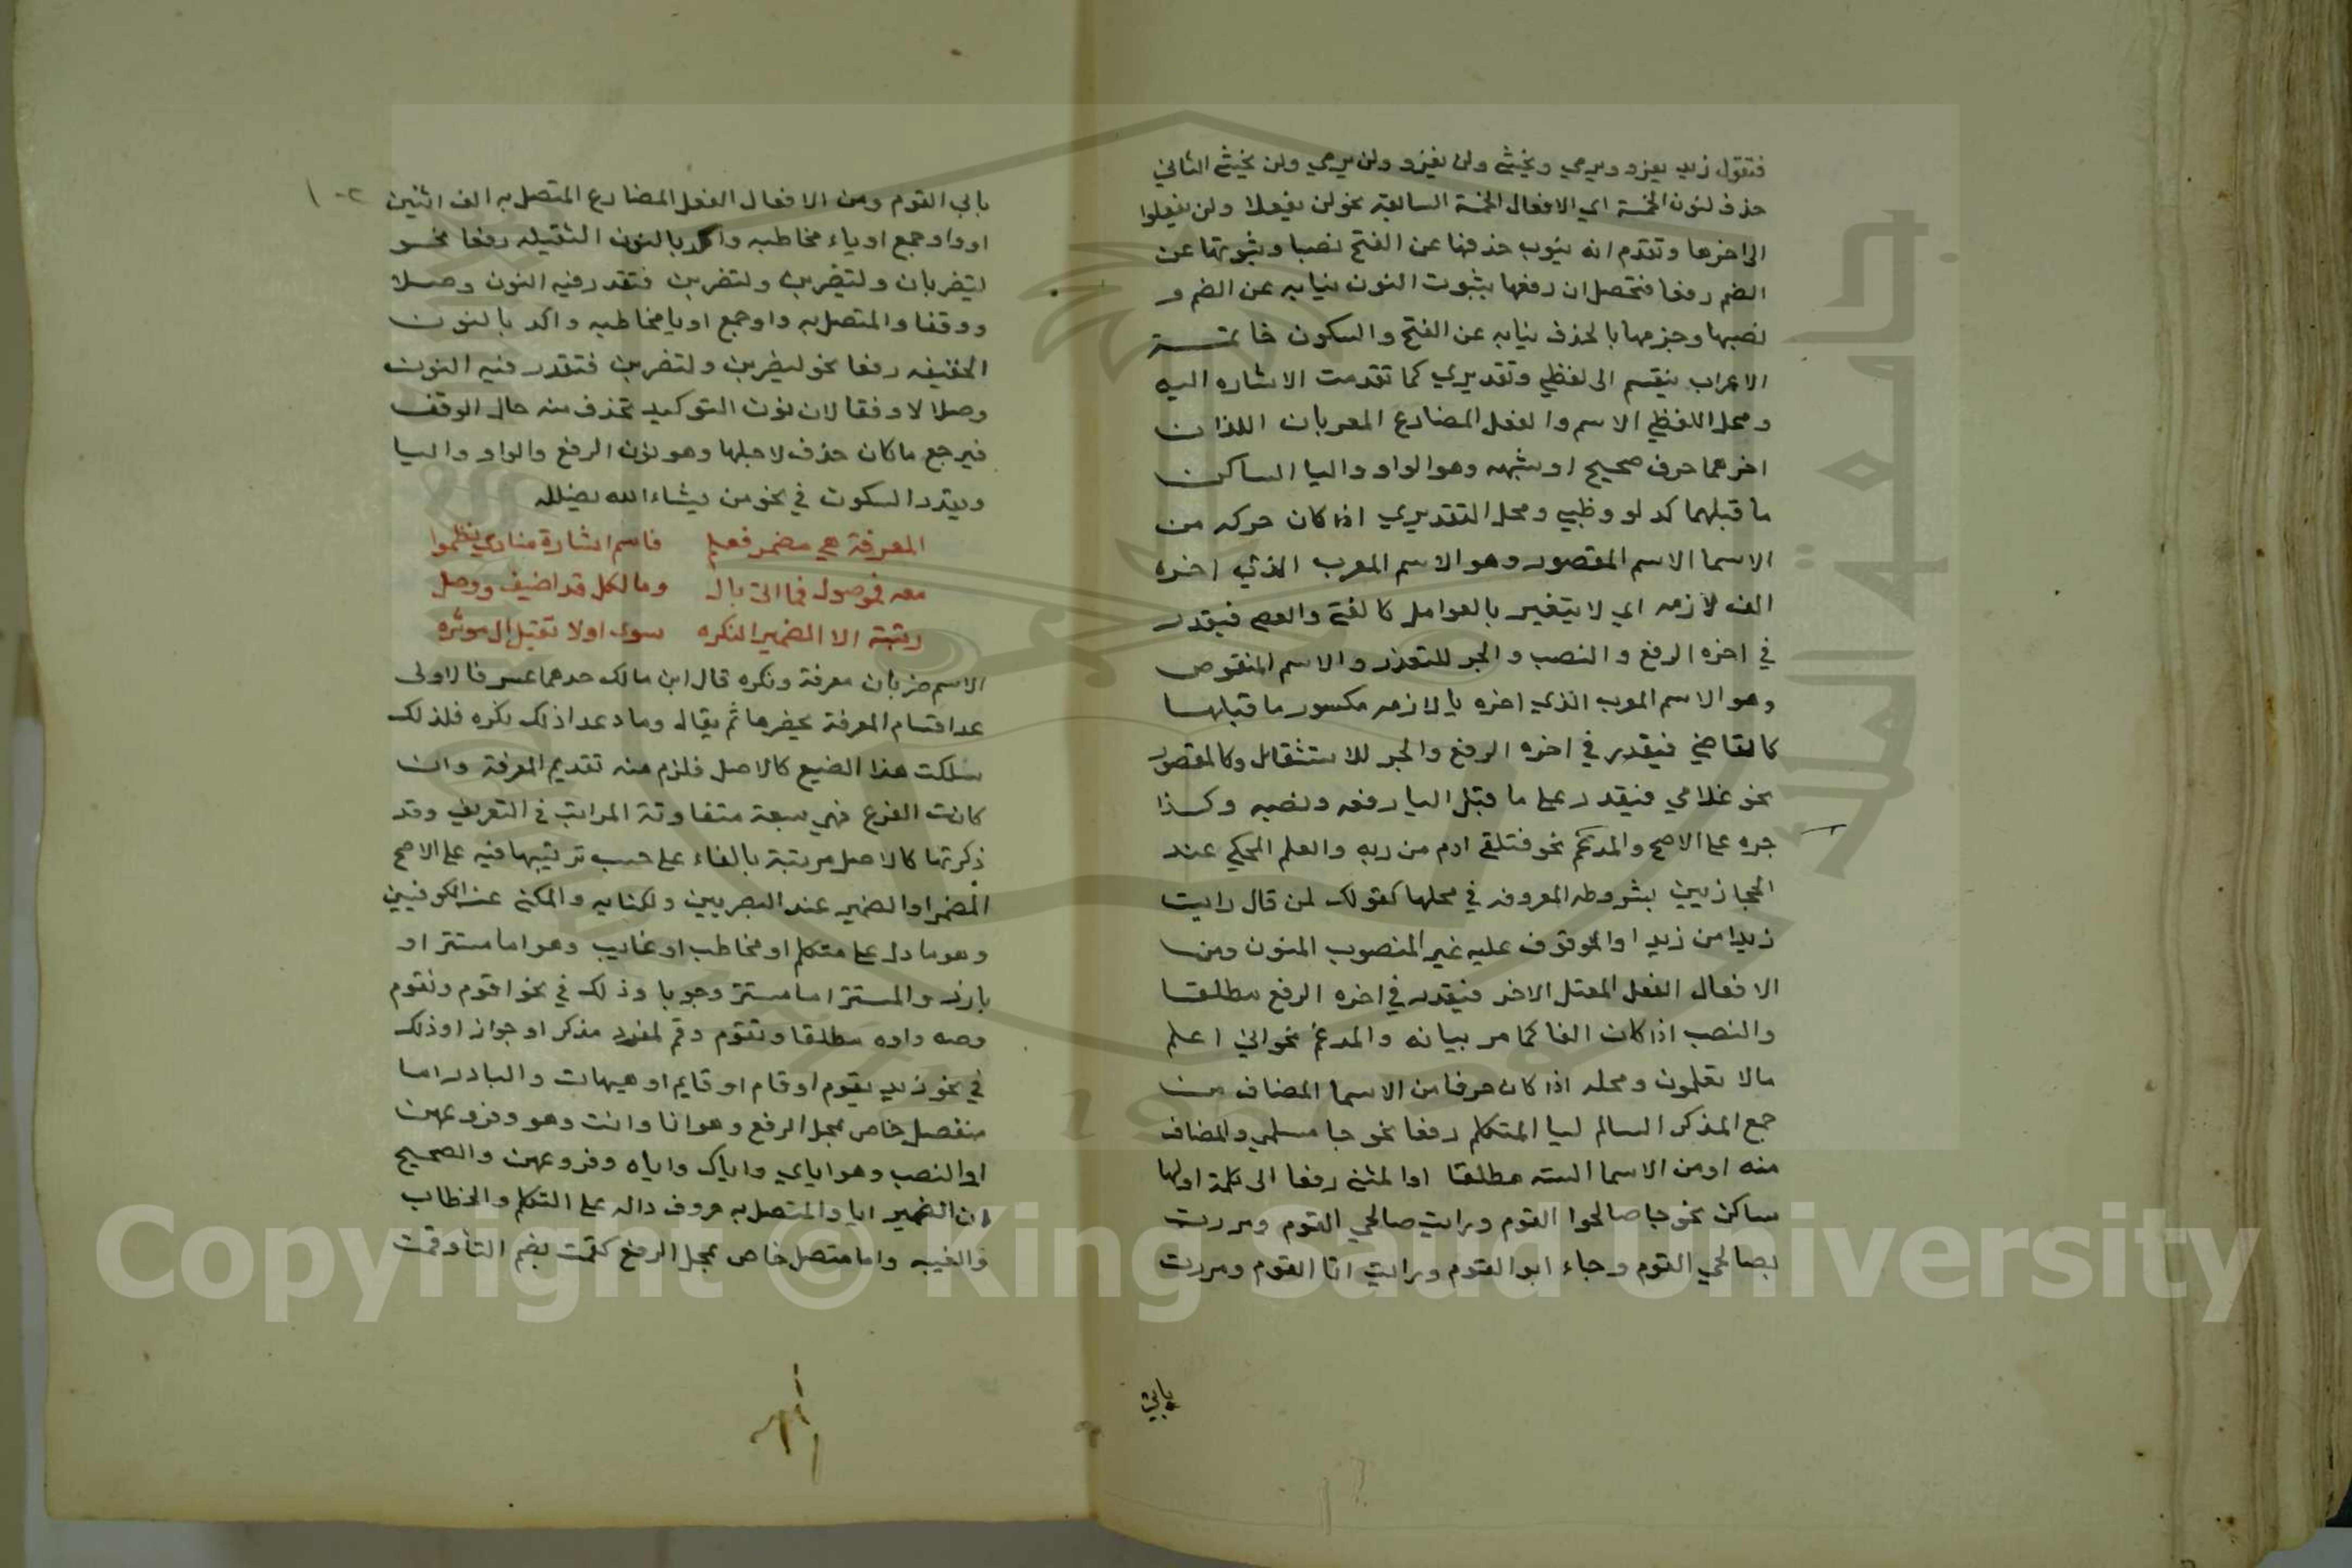 فتقول زيد يغزو ويرمي ويخشى ولن يغزو ولن يرمي ولن يخشى الثاني
حذف لنون الخمسة اي الافعال الخمسة السابقة نحو لن يفعلا ولن يفعلوا
الى اخرها وتقدم انه ينوب حذفها عن الفتح نصبا وثبوتها عن
الضم رفعا فتحصل ان رفعها بثبوت النون نيابه عن الضم و
نصبها وجزمها بالحذف نيابه عن الفتح والسكون خاتمــة
الاعراب ينقسم الى لفظي وتقديري كما تقدمت الاشاره اليه
ومحل اللفظي الاسم والفعل المضارع المعربان اللذان
اخرهما حرف صحيح او شبهه وهو الواو واليا الساكن
ما قبلهما كدلو وظبي ومحل التقديري اذا كان حركه من
الاسما الاسم المقصور وهو الاسم المعرب الذي اخره
الف لازمه اي لا يتغير بالعوامل كالفتى والعصى فيقدر
في اخره الرفع والنصب والجر للتعذر والاسم المنقوص
وهو الاسم المعرب الذي اخره يا لازمه مكسور ما قبلها
كالقاضي فيقدر في اخره الرفع والجر للاستثقال وكالمقصور
نحو غلامي فيقدر على ما قبل اليا رفعه ونصبه وكذا
جره على الاصح والمدغم نحو فتلقى ادم من ربه والعلم المحكي عند
الحجازيين بشروطه المعروفه في محلها كقولك لمن قال رايت
زيدا من زيدا والموقوف عليه غير المنصوب المنون ومن
الافعال الفعل المعتل الاخر فيقدر في اخره الرفع مطلقا
والنصب اذا كان الفا كما مر بيانه والمدغم نحو اني اعلم
مالا تعلمون ومحله اذا كان حرفا من الاسما المضاف من
جمع المذكر السالم ليا المتكلم رفعا نحو جا مسلمي والمضاف
منه او من الاسما السته مطلقا او المثنى رفعا الى كلمة اولها
ساكن نحو جا صالحوا القوم ورايت صالحي القوم ومررت
بصالحي القوم وجاء ابو القوم ورايت ابا القوم ومررت
بابي
بابي القوم ومن الافعال الفعل المضارع المتصل به الف اثنين
او واو جمع او ياء مخاطبه واكد بالنون الثقيله رفعا نحو
ليضربان وليضربن ولتضربن فتقدر فيه النون وصلا
ووقفا والمتصل به واو جمع او يا مخاطبه واكد بالنون
الخفيفه رفعا نحو ليضربن ولتضربن فتقدر فيه النون
وصلا لا وقفا لان نون التوكيد تحذف منه حال الوقف
فيرجع ما كان حذف لاجلها وهو نون الرفع والواو واليا
ويقدر السكون في نحو من يشاء الله يضلله
المعرفة هي مضمر فعلم فاسم اشارة منادى ينظموا
معه فموصول فما التى بال وما لكل قد اضيف ووصل
رتبته الا الضمير النكره سوى اولا تقبل ال موثره
الاسم ضربان معرفة ونكره قال ابن مالك حدهما عسر فالاولى
عد اقسام المعرفة بحصرها ثم يقال وما عدا ذلك نكره فلذلك
سلكت هذا الصنيع كالاصل فلزم منه تقديم المعرفة وان
كانت الفرع فهي سبعة متفاوتة المراتب في التعريف وقد
ذكرتها كالاصل مرتبة بالفاء على حسب ترتيبها فيه على الاصح
المضمر او الضمير عند البصريين والكنايه والمكنى عند الكوفيين
وهو ما دل على متكلم او مخاطب او غايب وهو اما مستتر او
بارز والمستتر اما مستتر وجوبا وذلك في نحو اقوم ونقوم
وصه واوه مطلقا وتقوم وقم لمفرد مذكر او جوازا وذلك
في نحو زيد يقوم او قام او قايم او هيهات والبارز اما
منفصل خاص بمحل الرفع وهو انا وانت وهو وفروعهن
او النصب وهو اياي واياك واياه وفروعهن والصحيح
ان الضمير ايا والمتصل به حروف داله على التكلم والخطاب
والغيبه واما متصل خاص بمحل الرفع كقمت بضم التا وقمت
Copyright © King Saud University
1957